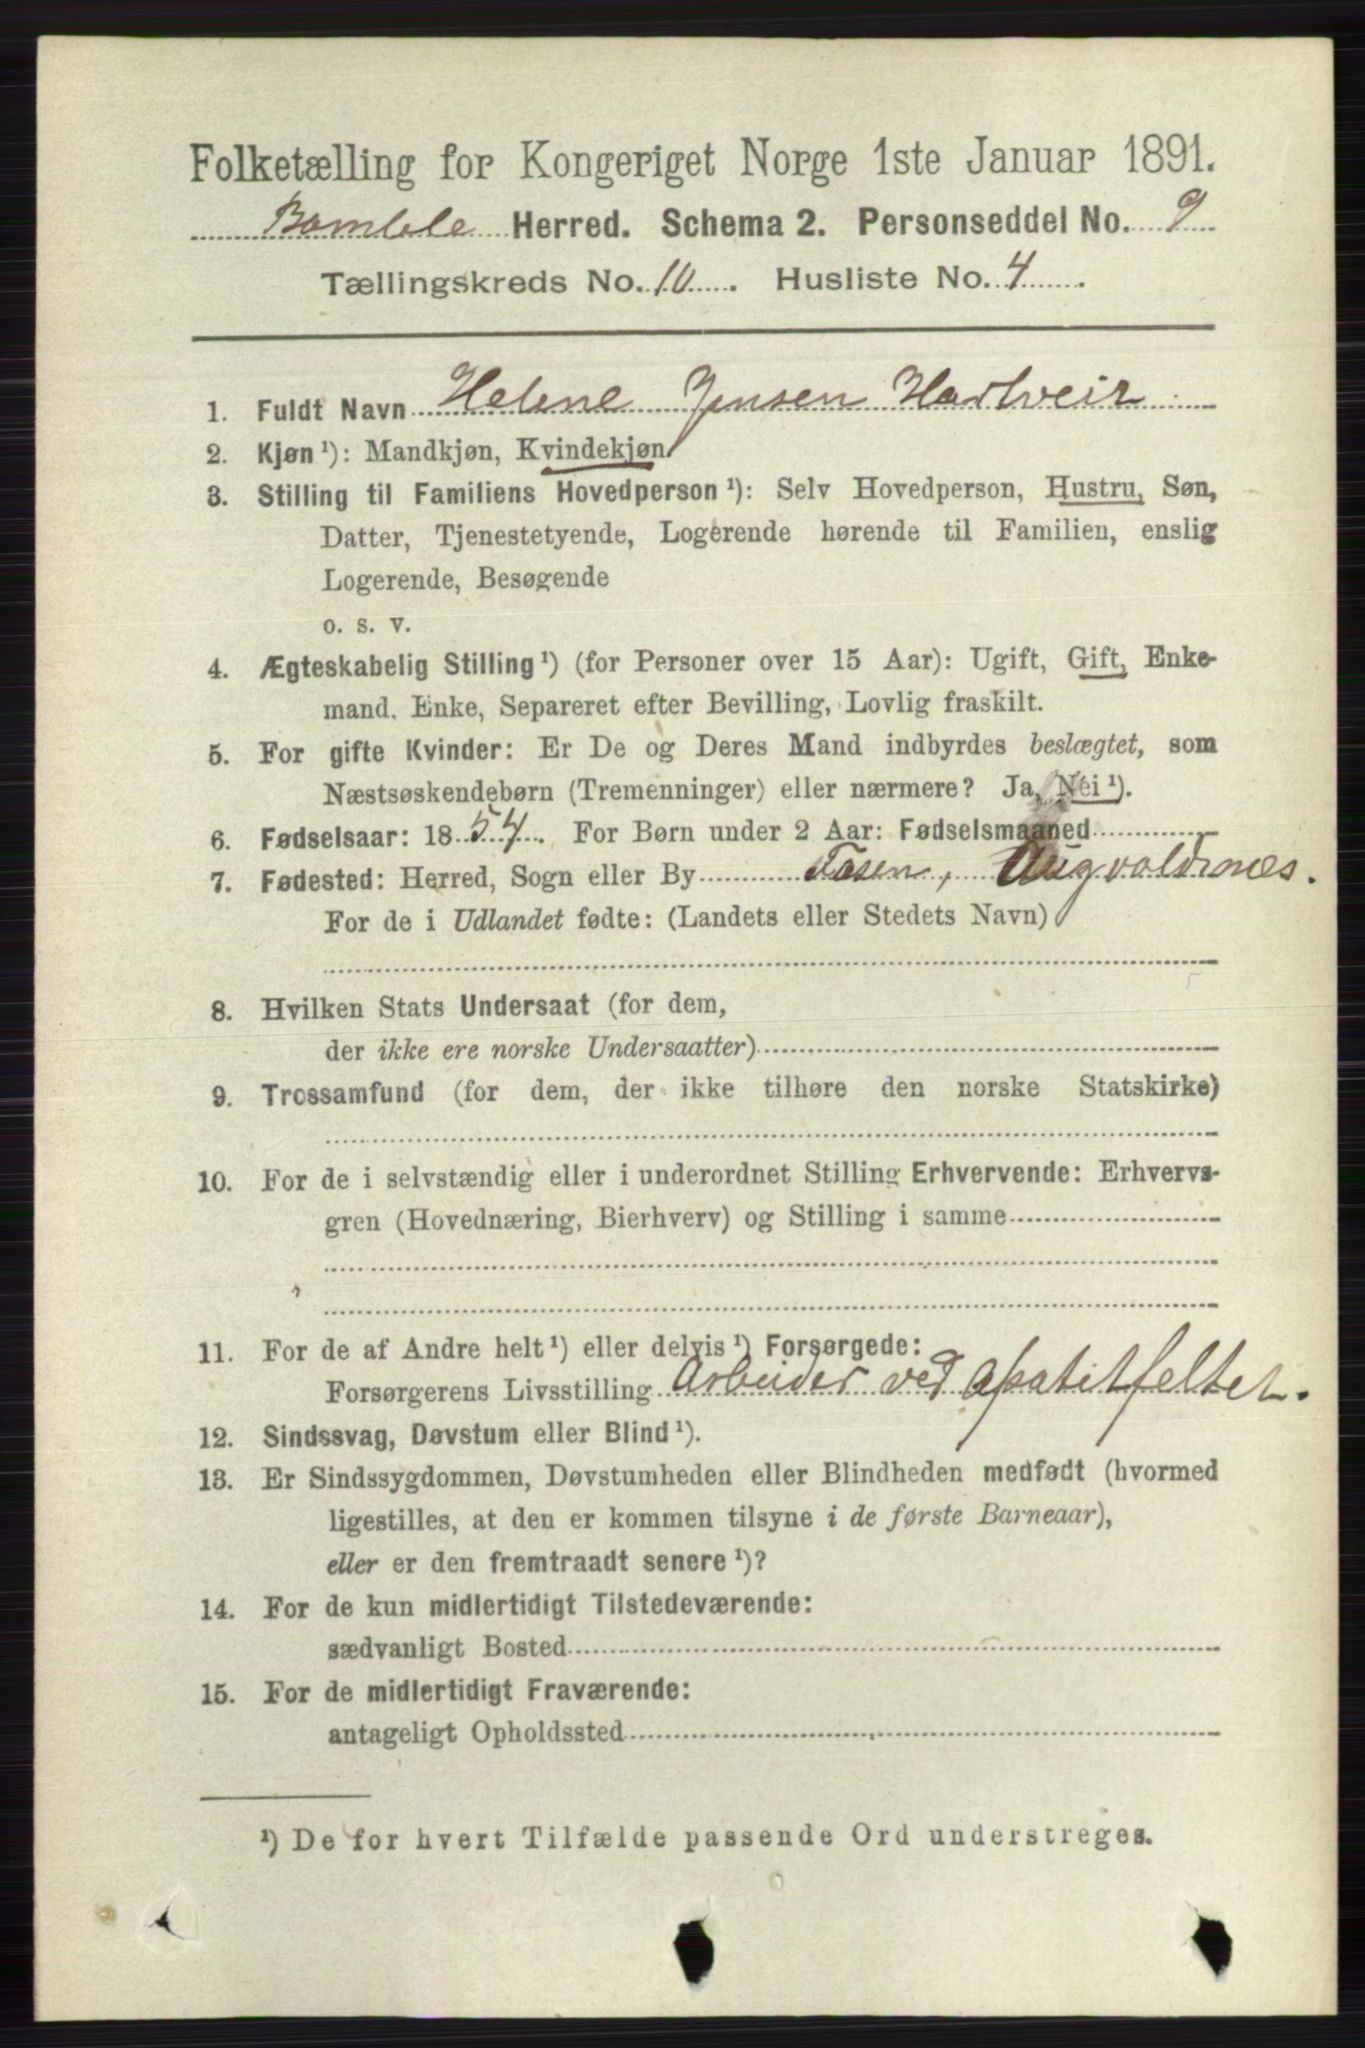 Folketælling for Kongeriget Norge 1ste Januar 1891.
Bamble Herred. Schema 2. Personseddel No. 9
Tællingskreds No. 10. Husliste No. 4.
1. Fuldt Navn Helene Jensen Hartveir
2. Kjøn ¹): Mandkjøn, Kvindekjøn
3. Stilling til Familiens Hovedperson ¹): Selv Hovedperson, Hustru, Søn,
Datter, Tjenestetyende, Logerende hørende til Familien, enslig
Logerende, Besøgende
o. s. v.
4. Ægteskabelig Stilling ¹) (for Personer over 15 Aar): Ugift, Gift, Enke-
mand, Enke, Separeret efter Bevilling, Lovlig fraskilt.
5. For gifte Kvinder: Er De og Deres Mand indbyrdes beslægtet, som
Næstsøskendebørn (Tremenninger) eller nærmere? Ja, Nei ¹).
6. Fødselsaar: 1854. For Børn under 2 Aar: Fødselsmaaned
7. Fødested: Herred, Sogn eller By Fosen, Augvoldsnes.
For de i Udlandet fødte: (Landets eller Stedets Navn)
8. Hvilken Stats Undersaat (for dem,
der ikke ere norske Undersaatter)
9. Trossamfund (for dem, der ikke tilhøre den norske Statskirke)
10. For de i selvstændig eller i underordnet Stilling Erhvervende: Erhvervs-
gren (Hovednæring, Bierhverv) og Stilling i samme
11. For de af Andre helt ¹) eller delvis ¹) Forsørgede:
Forsørgerens Livsstilling Arbeider ved apatitfeltet.
12. Sindssvag, Døvstum eller Blind ¹).
13. Er Sindssygdommen, Døvstumheden eller Blindheden medfødt (hvormed
ligestilles, at den er kommen tilsyne i de første Barneaar),
eller er den fremtraadt senere ¹)?
14. For de kun midlertidigt Tilstedeværende:
sædvanligt Bosted
15. For de midlertidigt Fraværende:
antageligt Opholdssted
¹) De for hvert Tilfælde passende Ord understreges.